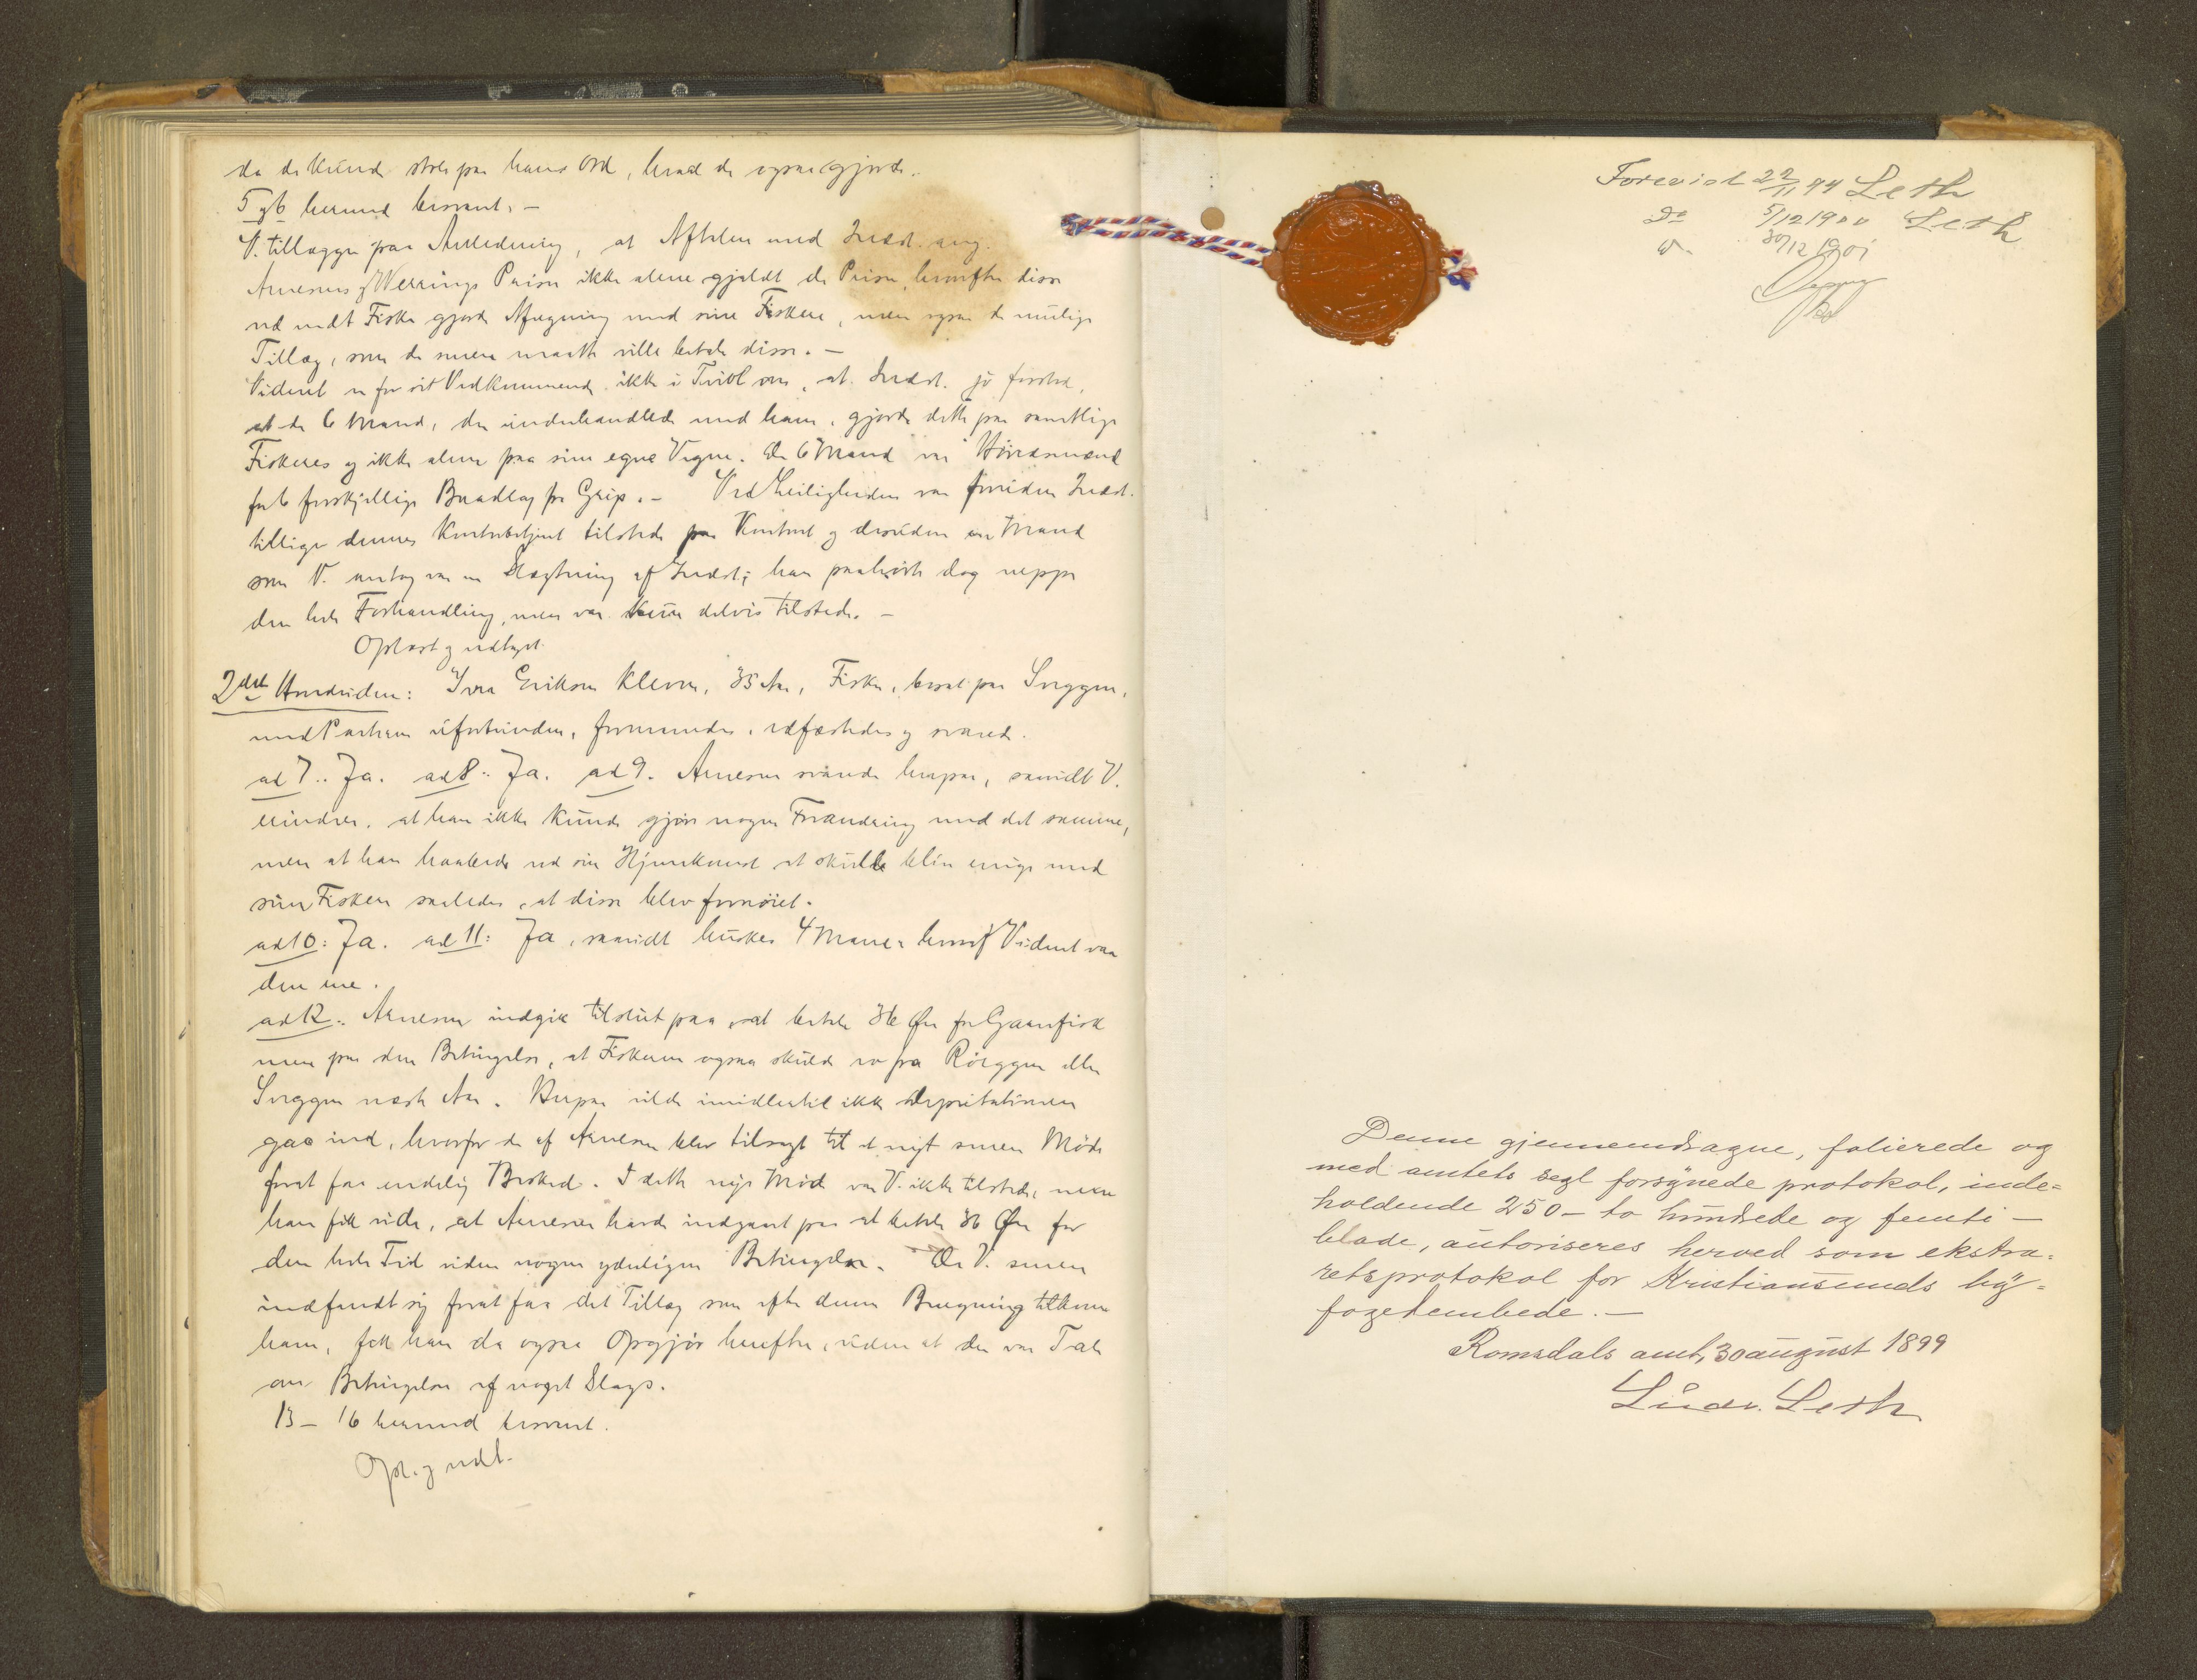 da de kunde stole paa hans Ord, hvad de ogsaa gjorde.
5 og 6 hermed besvaret. -
V. tillægger paa Anledning, at Aftalen med Indst. ang.
Arnesens & Werrings Priser ikke alene gjaldt de Priser, hvorefter disse
ved endt Fiske gjorde Afregning med sine Fiskere, men ogsaa de mulige
Tillæg, som de senere maatte ville betale disse. -
Vidnet er for sit Vedkommende ikke i Tvivl om, at Indst. jo forstod,
at de 6 Mand, der underhandlede med ham, gjorde dette paa samtlige
Fiskeres og ikke alene paa sine egne Vegne. De 6 Mand var Høvedsmænd
for 6 forskjellige Baadlag fra Grip. - Ved Leiligheden var foruden Indst.
tillige dennes Kontorbetjent tilstede paa Kontoret og desuden en Mand
som V. antog var en Slægtning af Indst; han paahørte dog neppe
den hele Forhandling, men var kun delvis tilstede. -
Oplæst og vedtaget.
2det Hovedvidne: Iver Eriksen Kleven, 35 Aar, Fisker, bosat paa Sveggen,
med Parterne uforbunden, formanedes, edfæstedes og svarede.
ad 7.. Ja. ad 8.. Ja. ad 9. Arnesen svarede herpaa, saavidt V.
erindrer, at han ikke kunde gjøre nogen Forandring med det samme,
men at han haabede ved sin Hjemkomst at skulle blive enige med
sine Fiskere saaledes, at disse blev fornøiet.
ad 10: Ja. ad 11: Ja, saavidt huskes 4 Mand hvoraf Vidnet var
den ene.
ad 12.. Arnesen indgik tilslut paa at betale 36 Øre for Garnfisk
men paa den Betingelse, at Fiskerne ogsaa skulde ro fra Røeggen eller
Sveggen næste Aar. Herpaa vilde imidlertid ikke Deputationen
gaa ind, hvorfor de af Arnesen blev tilsagt til et nyt senere Møde
forat faa endelig Besked. I dette nye Møde var V. ikke tilstede, men
han fik vide, at Arnesen havde indgaaet paa at betale 36 Øre for
den hele Tid uden nogen yderligere Betingelse. Da V. senere
indfandt sig forat faa det Tillæg som efter denne Beregning tilkom
ham, fik han da ogsaa Opgjør herefter, uden at der var Tale
om Betingelse af noget Slags.
13 - 16 hermed besvaret.
Opl. og vedt.
Forevist 22/11 99 Leth
Do 5/12 1900 Leth
30/12 1901
Denne gjennemdragne, folierede og
med amtets segl forsynede protokol, inde=
holdende 250 - to hundrede og femti -
blade, autoriseres herved som ekstra=
retsprotokol for Kristiansunds by=
fogedembede. -
Romsdals amt, 30 august 1899
Ludv. Leth